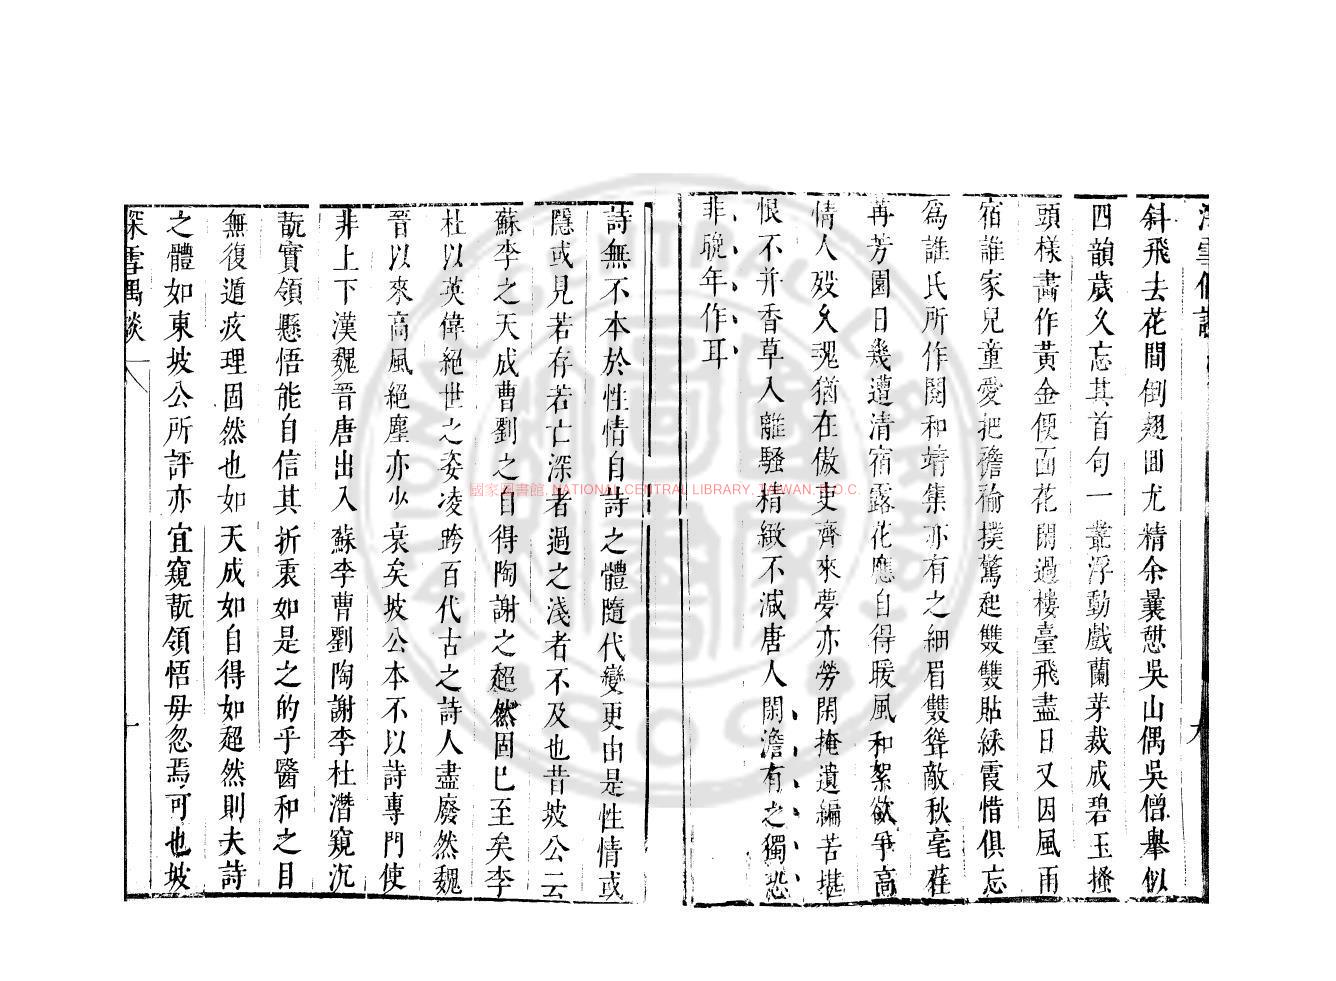 斜飛去花間倒翅囬尤精余曩憇吳山偶吳僧舉似
四韻歲久忘其首句一叢浮動戲蘭芽裁成碧玉搔
頭様畵作黃金便面花閑過樓臺飛盡日又因風雨
宿誰家兒童愛把襜褕撲驚起雙雙貼綵霞惜俱忘
爲誰氏所作閱和靖集亦有之細眉雙聳敵秋毫荏
苒芳園日幾遭清宿露花應自得暖風和絮欲爭高
情人殁久魂猶在傲吏齊來夢亦勞閑掩遺編苦堪
恨不并香草入離騷精緻不減唐人閑澹有之獨恐
非晚年作耳
詩無不本於性情自詩之體隨代變更由是性情或
隱或見若存若亡深者過之淺者不及也昔坡公云
蘇李之天成曹劉之自得陶謝之超然固已至矣李
杜以英偉絕世之姿凌跨百代古之詩人盡廢然魏
晉以來高風絕塵亦少衰矣坡公本不以詩專門使
非上下漢魏晉唐出入蘇李曹劉陶謝李杜潛窺沉
翫實領懸悟能自信其折衷如是之的乎醫和之目
無復遁疢理固然也如天成如自得如超然則夫詩
之體如東坡公所評亦宜窺翫領悟毋忽焉可也坡
深雪偶談
國家圖書館, NATIONAL CENTRAL LIBRARY, TAIWAN, R.O.C.